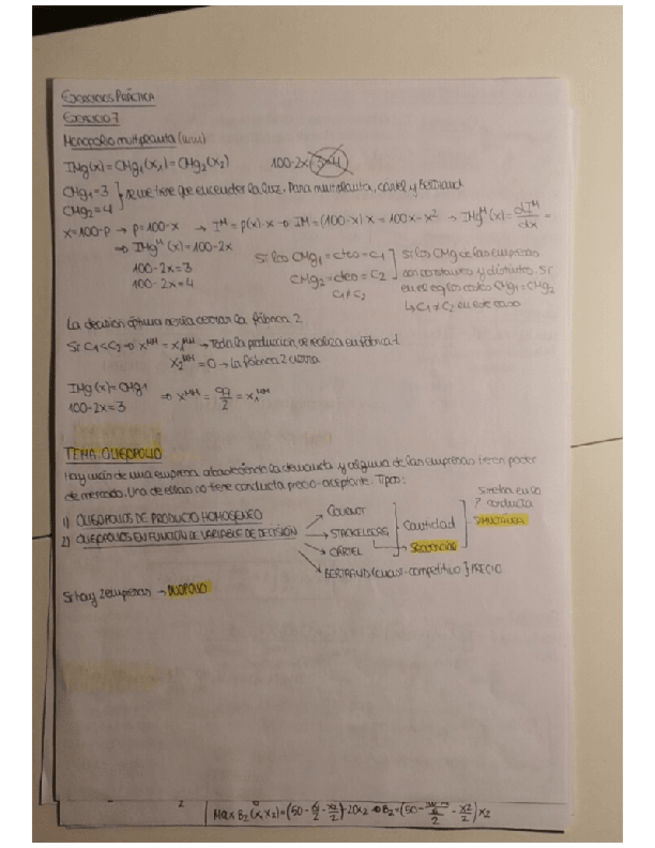 EJERCICIOS PRÁCTICA
EJERCICIO 7
Monopolio multiplanta (MM)
IMg(x)=CMg₁(x₁)=CMg₂(x₂) 100-2x
CMg₁=3 } se me tiene que encender la luz. Para multiplanta, cártel y Bertrand
CMg₂=4
x=100-P → P=100-x → Iᴹ=p(x)·x → IM=(100-x)x=100x-x² → IMgᴹ(x)=dIᴹ/dx=
⇒ IMgᴹ(x)=100-2x
100-2x=3
100-2x=4
Si los CMg₁=cteo=c₁ ] Si los CMg de las empresas
CMg₂=cteo=c₂ son constantes y distintos. Si
c₁≠c₂ en el eq los costes CMg₁=CMg₂
↳ c₁≠c₂ en este caso
La decisión óptima sería cerrar la fábrica 2
Si c₁<c₂ ⇒ xᴹᴹ=x₁ᴹᴹ → Toda la producción se realiza en fábrica 1
x₂ᴹᴹ=0 → La fábrica 2 cierra
IMg(x)=CMg₁
100-2x=3 ⇒ xᴹᴹ=97/2=x₁ᴹᴹ
TEMA: OLIGOPOLIO
Hay más de una empresa abasteciendo la demanda y alguna de las empresas tienen poder
de mercado. Una de ellas no tiene conducta precio-aceptante. Tipos:
1) OLIGOPOLIOS DE PRODUCTO HOMOGÉNEO
2) OLIGOPOLIOS EN FUNCIÓN DE VARIABLE DE DECISIÓN
COURNOT
STACKELBERG
CÁRTEL
Cantidad
SECUENCIAL
conducta
SIMULTÁNEA
BERTRAND (cuasi-competitivo) } PRECIO
Si hay 2 empresas → DUOPOLIO